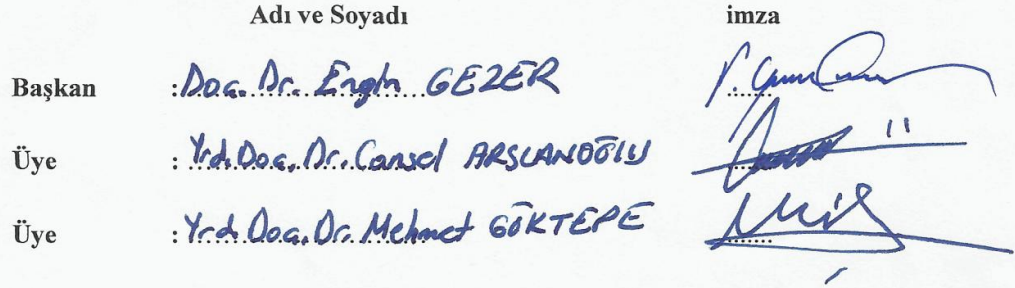 Adı ve Soyadı imza
Başkan : Doç. Dr. Engin GEZER
Üye : Yrd. Doç. Dr. Cansel ARSLANOĞLU
Üye : Yrd. Doç. Dr. Mehmet GÖKTEPE